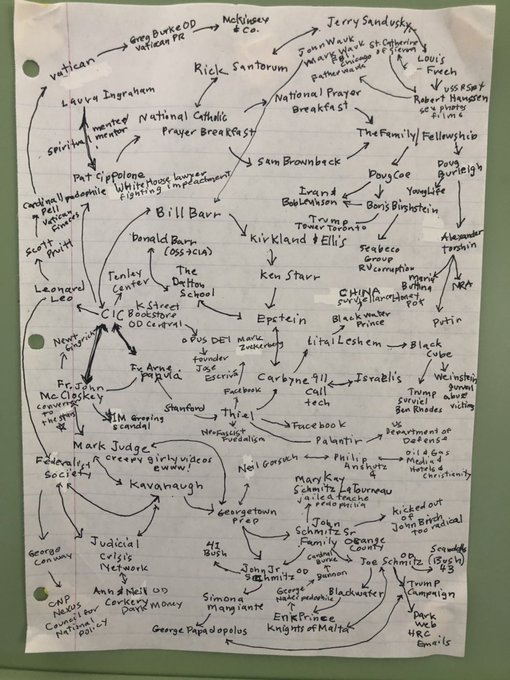 Greg Burke OD
Vatican PR
McKinsey
& Co.
Jerry Sandusky
Vatican
John Wauk
Mark Wauk
FBI
Chicago
Father Wauk
St. Catherine
of Siena
Louis
Freeh
Rick Santorum
Laura Ingraham
Robert Hanssen
sex photos
films
National Prayer
Breakfast
mentee/
mentor
spiritual
National Catholic
Prayer Breakfast
The Family/Fellowship
Sam Brownback
Doug
Burleigh
Pat Cippolone
White House lawyer
fighting impeachment
Cardinal pedophile
Pell
Vatican
finances
Doug Coe
Young Life
Iran &
Bob Levinson
Boris Birshstein
Bill Barr
Trump
Tower Toronto
Scott
Pruitt
Donald Barr
(OSS→CIA)
Kirkland & Ellis
Seabeco
Group
RV corruption
Alexander
Torshin
Tenley
Center
The
Dalton
School
Ken Starr
Maria
Buttina
NRA
Leonard
Leo
CHINA
surveillance Honey
Pot
K Street
Bookstore
OD Central
CIC
Epstein
Blackwater
Prince
Putin
Newt
Gingrich
OPUS DEI
founder
Jose
Escriva
Mark
Zuckerberg
Lital Leshem
Black
Cube
Fr. Arne
Panula
Fr. John
McCloskey
converts
to
the stars
Facebook
Carbyne 911
Call
tech
Israelis
Weinstein
abuse
victims
Trump
surviel
Ben Rhodes
Stanford
Thiel
IM Groping
scandal
Neofascist
Fuedalism
Facebook
Palantir
US
Department of
Defense
Mark Judge
creepy girly videos
ewww!
Federalist
Society
Neil Gorsuch
Philip
Anshutz
Oil & Gas
Media &
Hotels &
Christianity
Kavanaugh
Mary Kay
Schmitz LaTourneau
jailed teache
pedophilia
Georgetown
Prep
kicked out
of
John Birch
too radical
John
Schmitz Sr
Family Orange
County
George
Conway
Judicial
Crisis
Network
41
Bush
Cardinal
Burke
&
Bannon
Joe Schmitz OD
(Bush)
43
John Jr. OD
Schmitz
Ann & Neil OD
Corkery
Dark Money
CNP
Nexus
Council for
National
Policy
Simona
Mangiante
George
Nader pedophile
Blackwater
Trump
Campaign
Erik Prince
Knights of Malta
George Papadopolos
Dark
Web
HRC
Emails